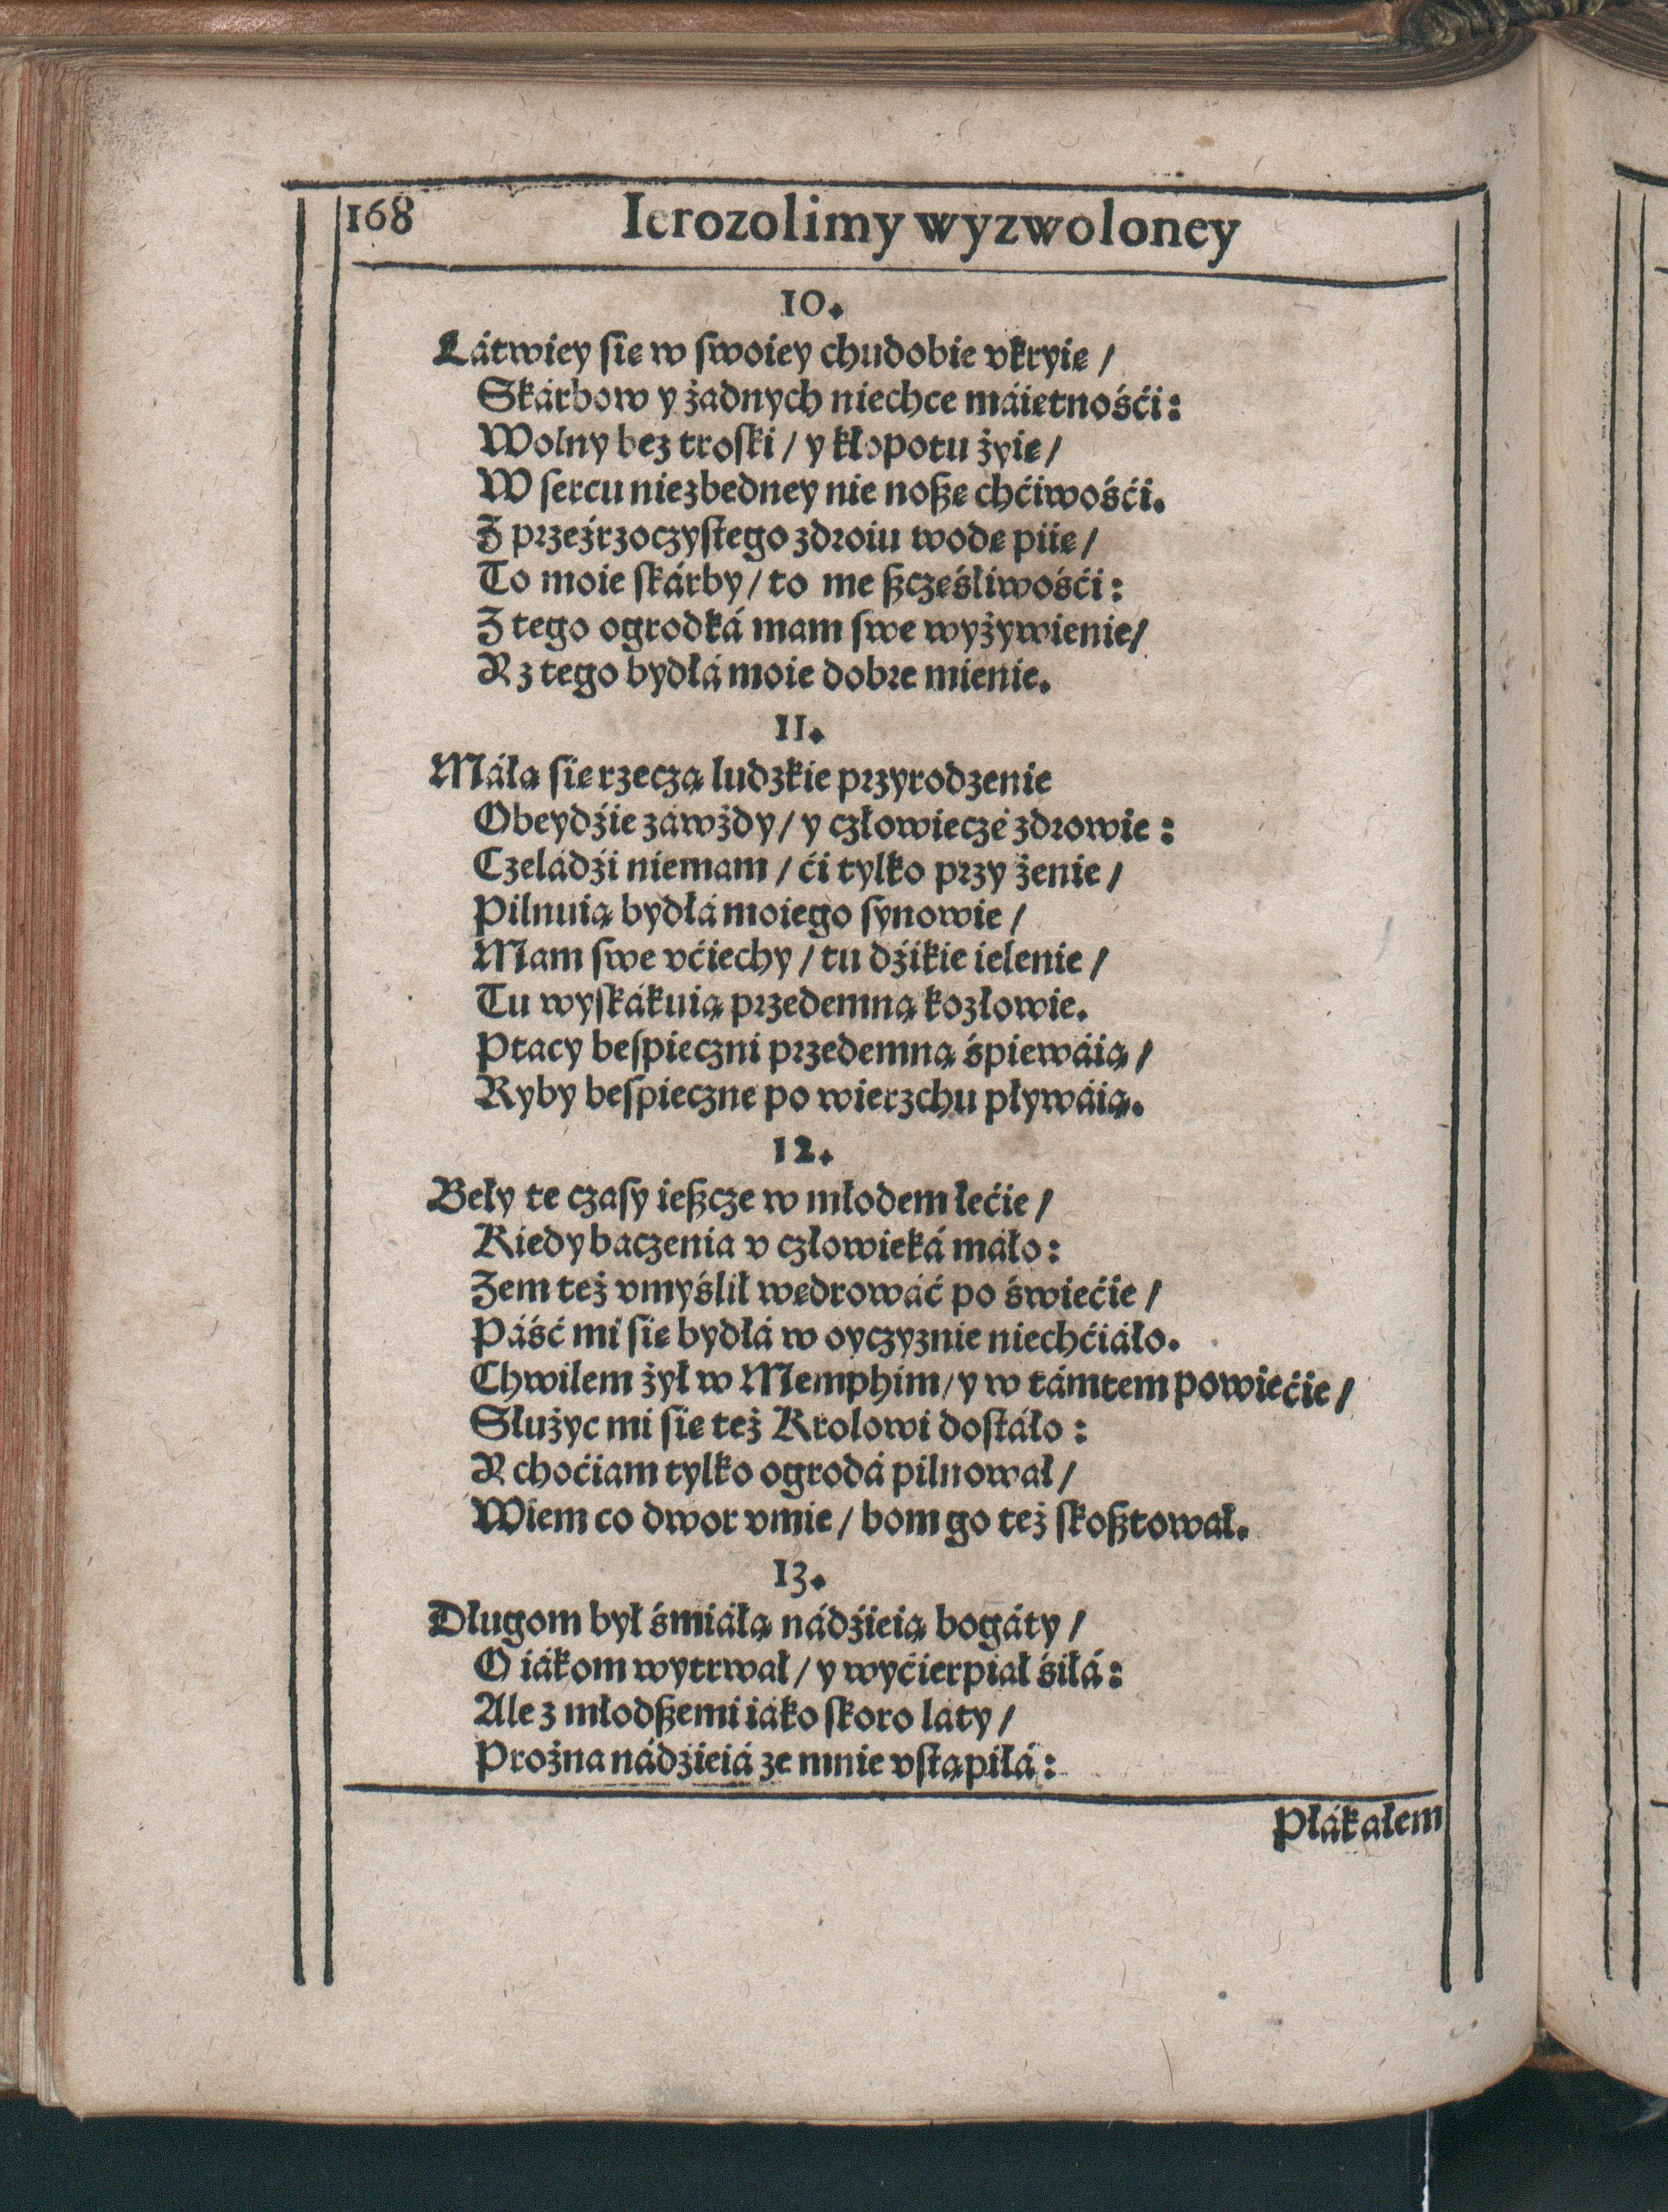 168 Ierozolimy wyzwoloney
10.
Łátwiey się w swoiey chudobie vkryię /
Skárbow y żadnych niechcę máiętnośći:
Wolny bez troski / y kłopotu żyię /
W sercu niezbędney nie noszę chćiwośći.
Z przeźrzoczystego zdroiu wodę piię /
To moie skárby / to me szczęśliwośći:
Z tego ogrodká mam swe wyżywienie /
Y z tego bydłá moie dobre mienie.
11.
Máłą się rzeczą ludzkie przyrodzenie
Obeydźie záwżdy / y człowiecze zdrowie:
Czeládźi niemam / ći tylko przy żenie /
Pilnuią bydłá moiego synowie /
Mam swe vćiechy / tu dźikie ielenie /
Tu wyskákuią przedemną kozłowie.
Ptacy bespieczni przedemną śpiewáią /
Ryby bespieczne po wierzchu pływáią.
12.
Beły te czasy ieszcze w młodem lećie /
Kiedy baczenia v człowieká máło:
Żem też vmyślił wędrowáć po świećie /
Páść mi się bydłá w oyczyznie niechćiáło.
Chwilem żył w Memphim / y w támtem powiećie /
Służyc mi się też Krolowi dostáło:
Y choćiam tylko ogrodá pilnował /
Wiem co dwor vmie / bom go też skosztował.
13.
Długom był śmiáłą nádźieią bogáty /
O iákom wytrwał / y wyćierpiał śiłá:
Ale z młodszemi iáko skoro láty /
Prożna nádźieiá ze mnie vstąpiłá:
Płákałem